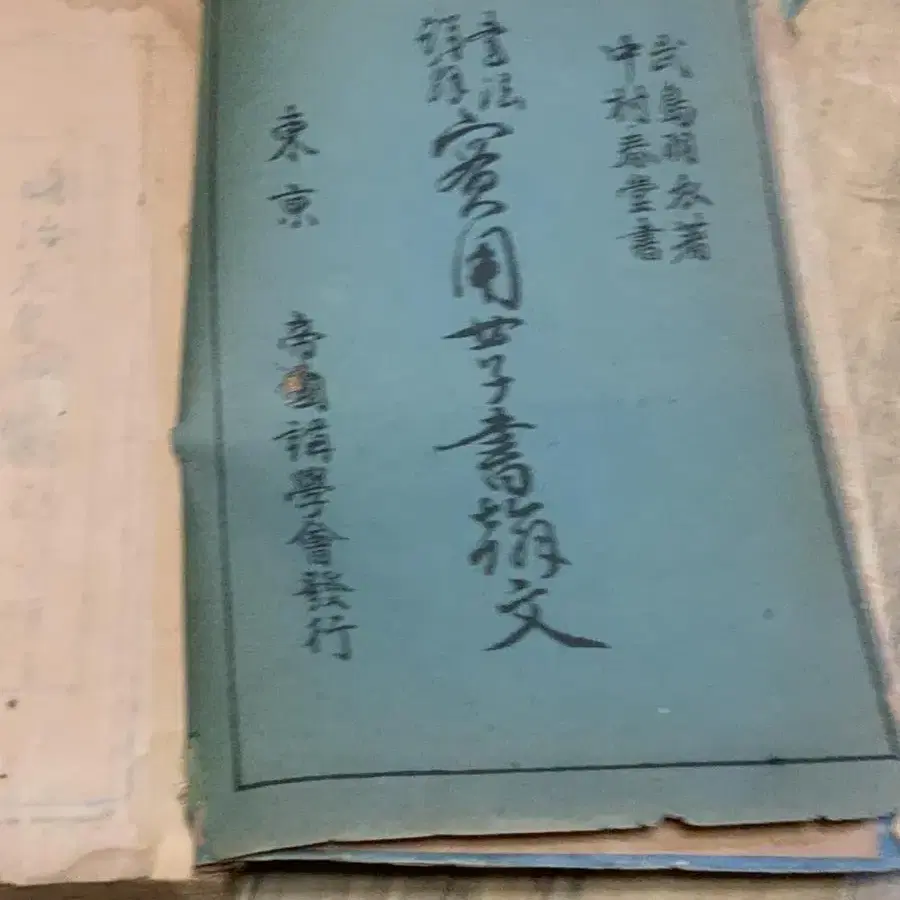 武島羽衣著
中村春堂書
書法
詳解
實用女子書翰文
東京 帝國講學會發行